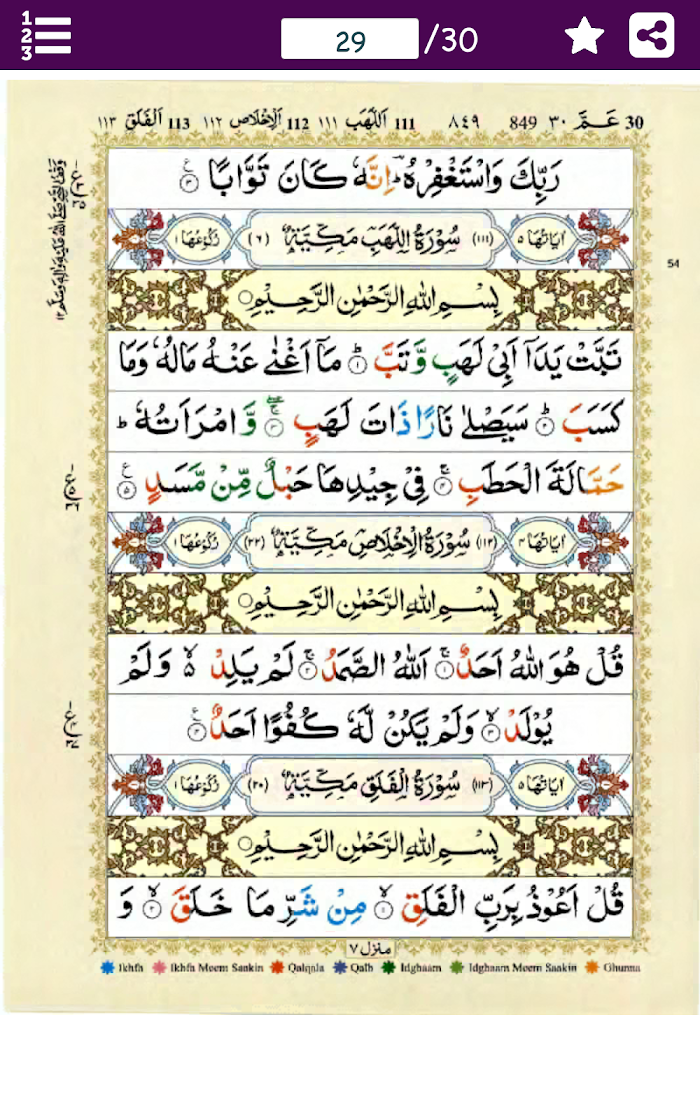 1
2
3
29 /30
30 عَـمَّ ٣٠ 849 ٨٤٩ 111 اَللَّهَب ١١١ 112 اَلْاِخْلَاص ١١٢ 113 اَلْفَلَق ١١٣
رَبِّكَ وَاسْتَغْفِرْهُ ؕ اِنَّهٗ كَانَ تَوَّابًا ۟ ٣
اٰيَاتُهَا ٥ (١١١) سُوْرَةُ اللَّهَبِ مَكِّيَّةٌ (٦) رُكُوْعُهَا ١
54
بِسْمِ اللهِ الرَّحْمٰنِ الرَّحِيْمِ
تَبَّتْ يَدَاۤ اَبِيْ لَهَبٍ وَّتَبَّ ؕ ١ مَاۤ اَغْنٰى عَنْهُ مَالُهٗ وَمَا
كَسَبَ ؕ ٢ سَيَصْلٰى نَارًا ذَاتَ لَهَبٍ ٣ وَّامْرَاَتُهٗ ؕ
حَمَّالَةَ الْحَطَبِ ٤ فِيْ جِيْدِهَا حَبْلٌ مِّنْ مَّسَدٍ ٥
اٰيَاتُهَا ٤ (١١٢) سُوْرَةُ الْاِخْلَاصِ مَكِّيَّةٌ (٢٢) رُكُوْعُهَا ١
بِسْمِ اللهِ الرَّحْمٰنِ الرَّحِيْمِ
قُلْ هُوَ اللهُ اَحَدٌ ١ اَللهُ الصَّمَدُ ٢ لَمْ يَلِدْ ۙ وَلَمْ
يُوْلَدْ ۙ ٣ وَلَمْ يَكُنْ لَّهٗ كُفُوًا اَحَدٌ ٤
اٰيَاتُهَا ٥ (١١٣) سُوْرَةُ الْفَلَقِ مَكِّيَّةٌ (٢٠) رُكُوْعُهَا ١
بِسْمِ اللهِ الرَّحْمٰنِ الرَّحِيْمِ
قُلْ اَعُوْذُ بِرَبِّ الْفَلَقِ ۙ ١ مِنْ شَرِّ مَا خَلَقَ ۙ ٢ وَ
منزل ٧
Ikhfa Ikhfa Meem Saakin Qalqala Qalb Idghaam Idghaam Meem Saakin Ghunna